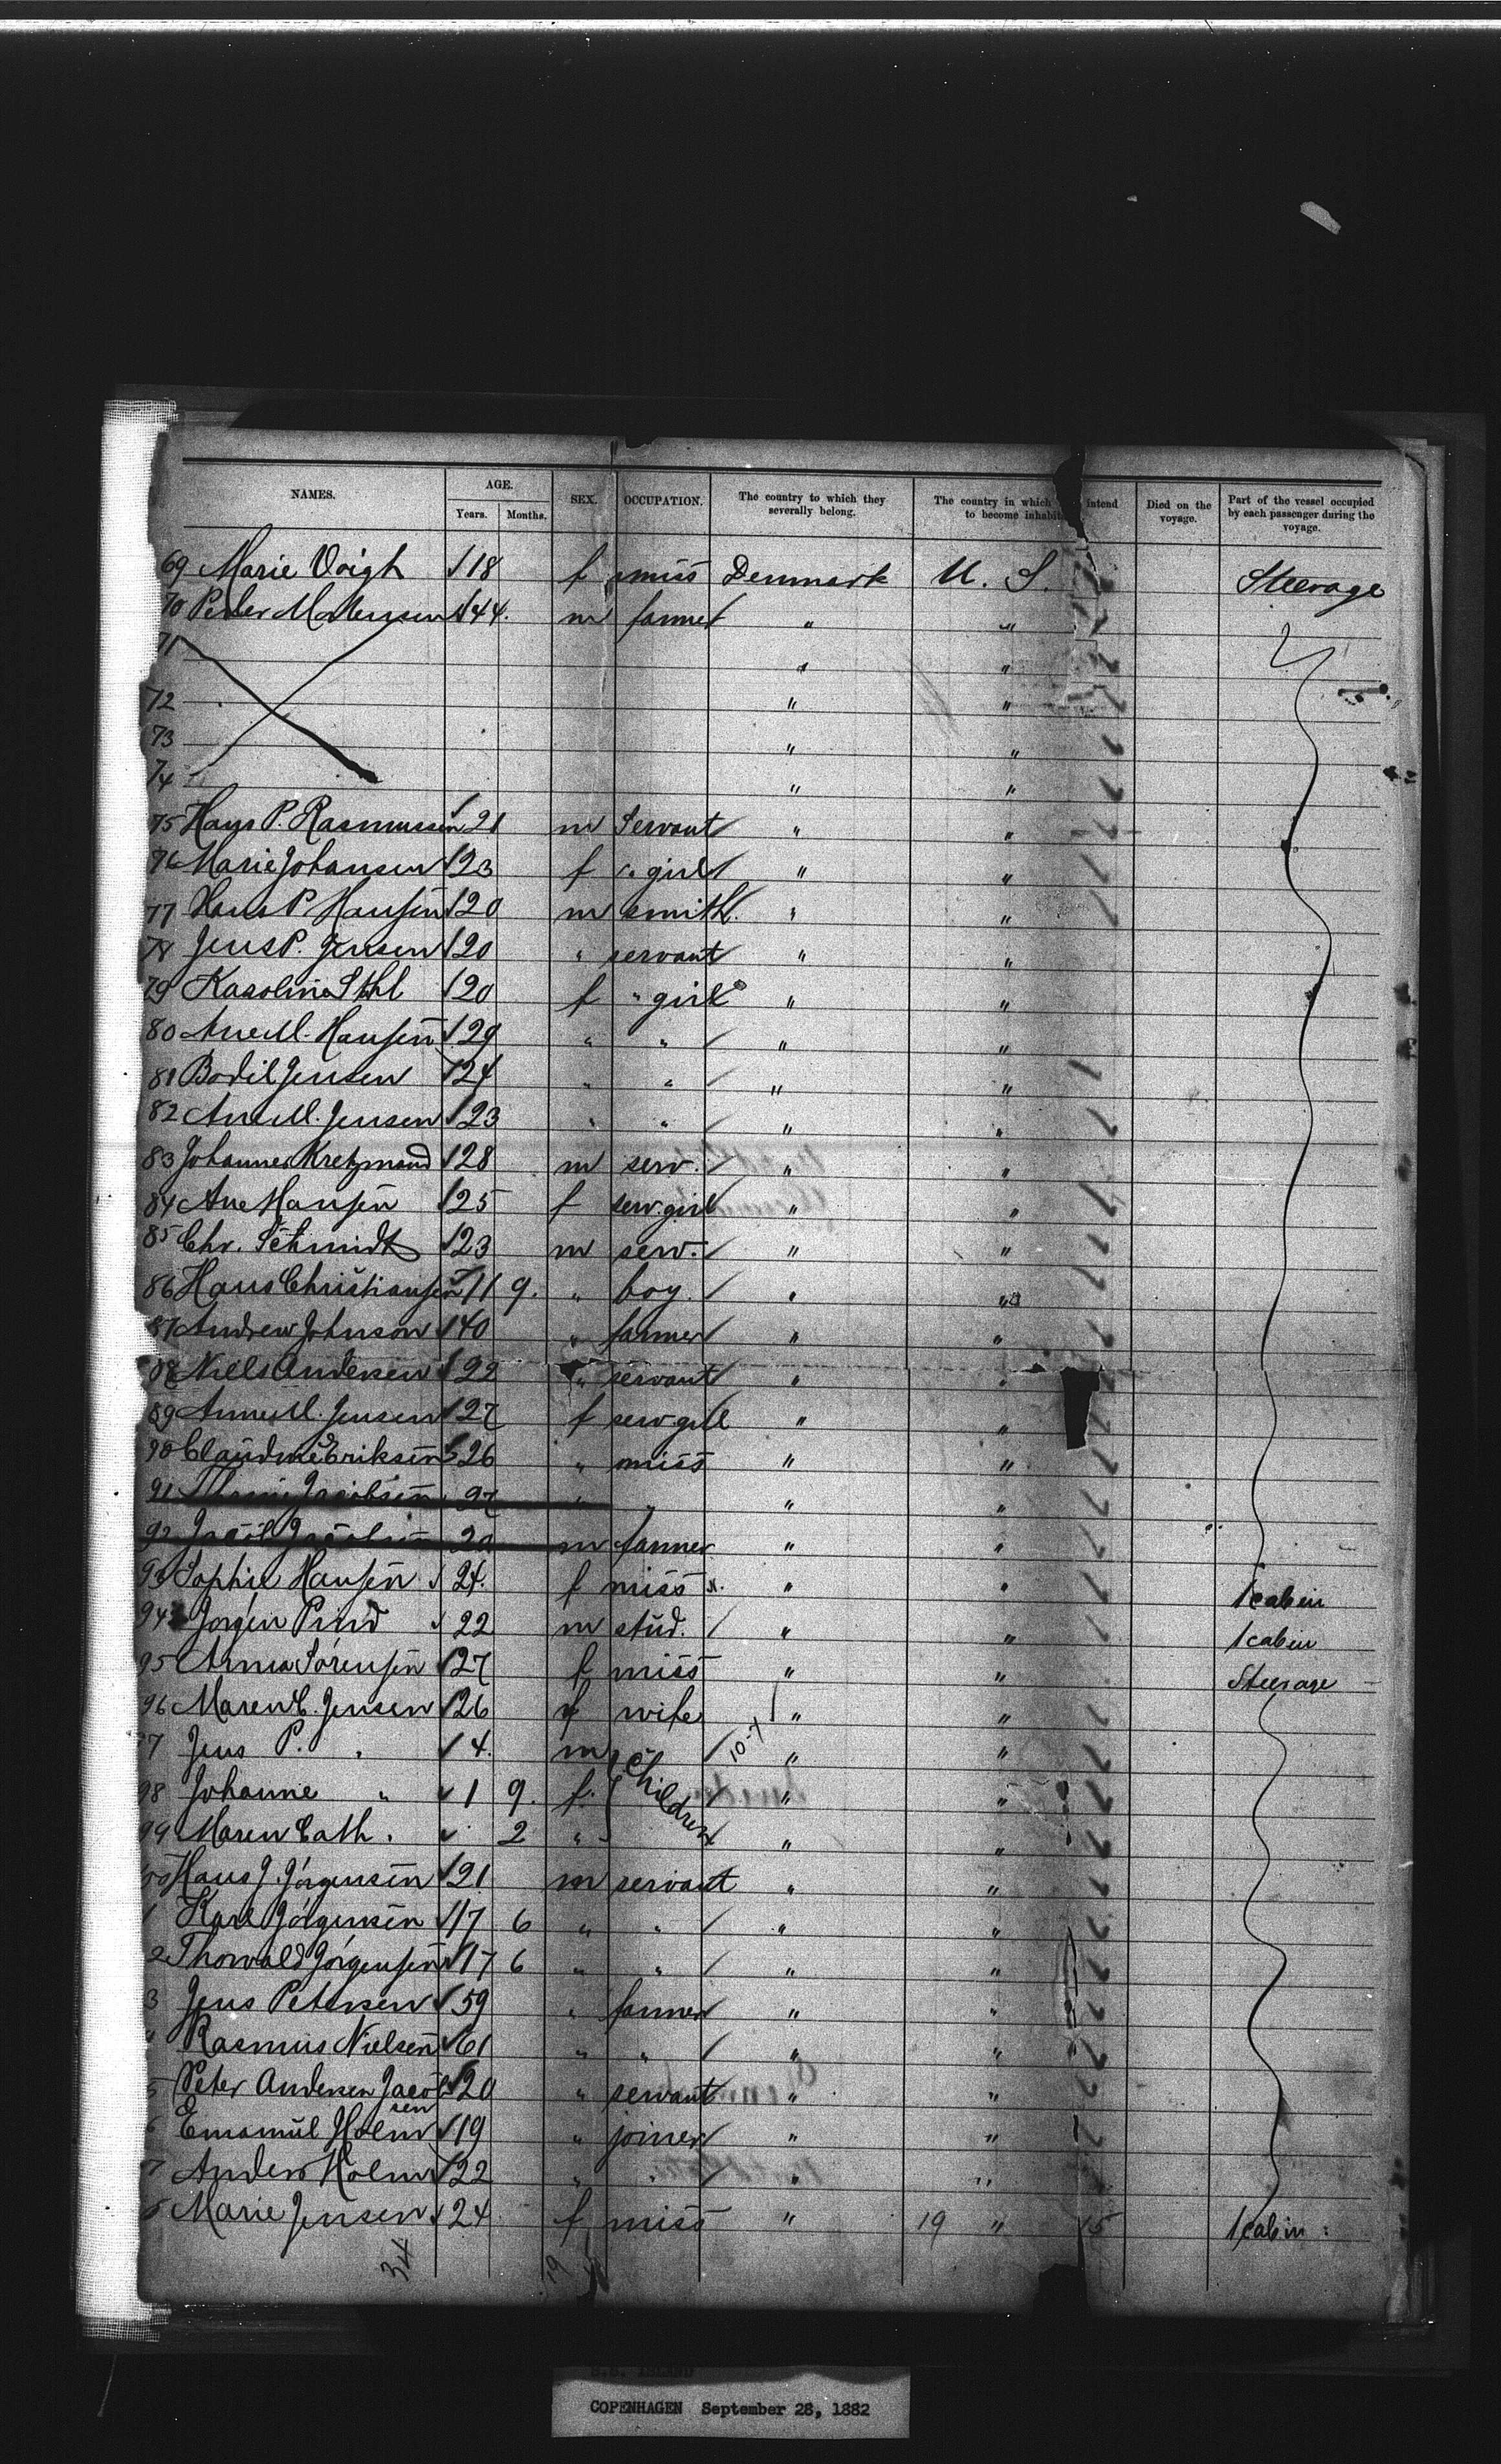 NAMES. AGE. SEX. OCCUPATION. The country to which they severally belong. The country in which intend to become inhabit Died on the voyage. Part of the vessel occupied by each passenger during the voyage.
Years. Months.
69 Marie Voigh 18 f miss Denmark U. S. Steerage
70 Peder Mortensen 44. m farmer " "
71 " "
72 " "
73 " "
74 " "
75 Hans P. Rasmussen 21 m Servant " "
76 Marie Johansen 23 f " girl " "
77 Hans P Hansen 20 m smith. " "
78 Jens P. Jensen 20 " servant " "
79 Karoline 20 f " girl " "
80 Ane M. Hansen 29 " " " "
81 Bodil Jensen 24 " " " "
82 Ane M. Jensen 23 " " " "
83 Johannes Kretzmand 28 m serv. " "
84 Ane Hansen 25 f serv. girl " "
85 Chr. Schmidt 23 m serv. " "
86 Hans Christiansen 11 9. " boy. " "
87 Andrew Johnson 40 " farmer " "
88 Niels Andersen 22 " servant " "
89 Anne M. Jensen 27 f serv. girl " "
90 Claudine Eriksen 26 " miss " "
91 Jacobsen 27 " " " "
92 m farmer " "
93 Sophie Hansen 24. f miss " " 1 cabin
94 Jorgen Pind 22 m stud. " " 1 cabin
95 Anna Sörensen 27 f miss " " Steerage
96 Maren C. Jensen 26 f wife " "
97 Jens P. " 4. m children 10-7 " "
98 Johanne " 1 9. f. " "
99 Maren Cath. " 2 " " "
100 Hans J. Jörgensen 21 m servant " "
1 Karl Jörgensen 17 6 " " " "
2 Thorvald Jörgensen 17 6 " " " "
3 Jens Petersen 59 " farmer " "
4 Rasmus Nielsen 61 " " " "
5 Peter Andersen Jacobsen 20 " servant " "
6 Emamül Holm 19 " joiner " "
7 Anders Holm 22 " " " "
8 Marie Jensen 24 f miss " 19 " 15 1 cabin :
34 19
S.S. ISLAND
COPENHAGEN September 28, 1882